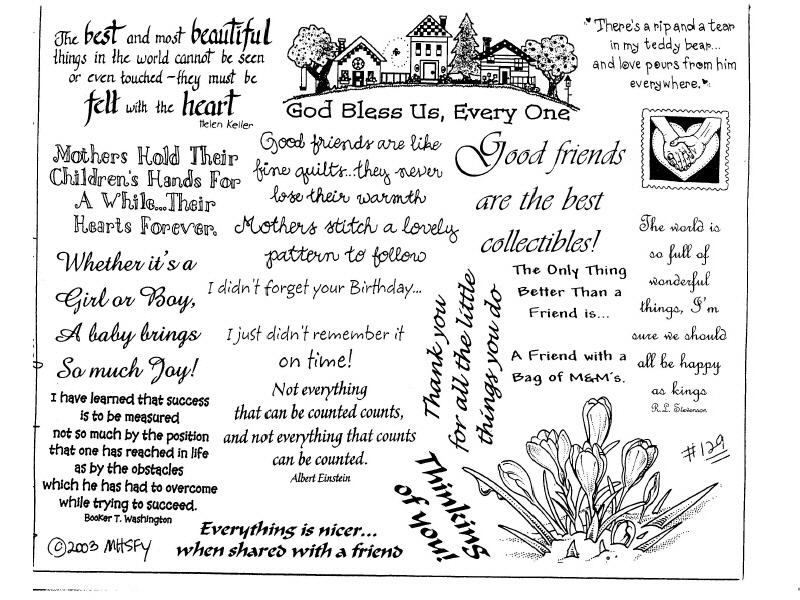 The best and most beautiful
things in the world cannot be seen
or even touched - they must be
felt with the heart
Helen Keller
God Bless Us, Every One
There's a rip and a tear
in my teddy bear...
and love pours from him
everywhere.
Mothers Hold Their
Children's Hands For
A While...Their
Hearts Forever.
Good friends are like
fine quilts..they never
lose their warmth
Mothers stitch a lovely
pattern to follow
Good friends
are the best
collectibles!
The world is
so full of
wonderful
things, I'm
sure we should
all be happy
as kings
R.L. Stevenson
Whether it's a
Girl or Boy,
A baby brings
So much Joy!
I didn't forget your Birthday...
I just didn't remember it
on time!
Thank you
for all the little
things you do
The Only Thing
Better Than a
Friend is...
A Friend with a
Bag of M&M's.
I have learned that success
is to be measured
not so much by the position
that one has reached in life
as by the obstacles
which he has had to overcome
while trying to succeed.
Booker T. Washington
Not everything
that can be counted counts,
and not everything that counts
can be counted.
Albert Einstein
Thinking
of you!
#129
©2003 MHSFY
Everything is nicer...
when shared with a friend